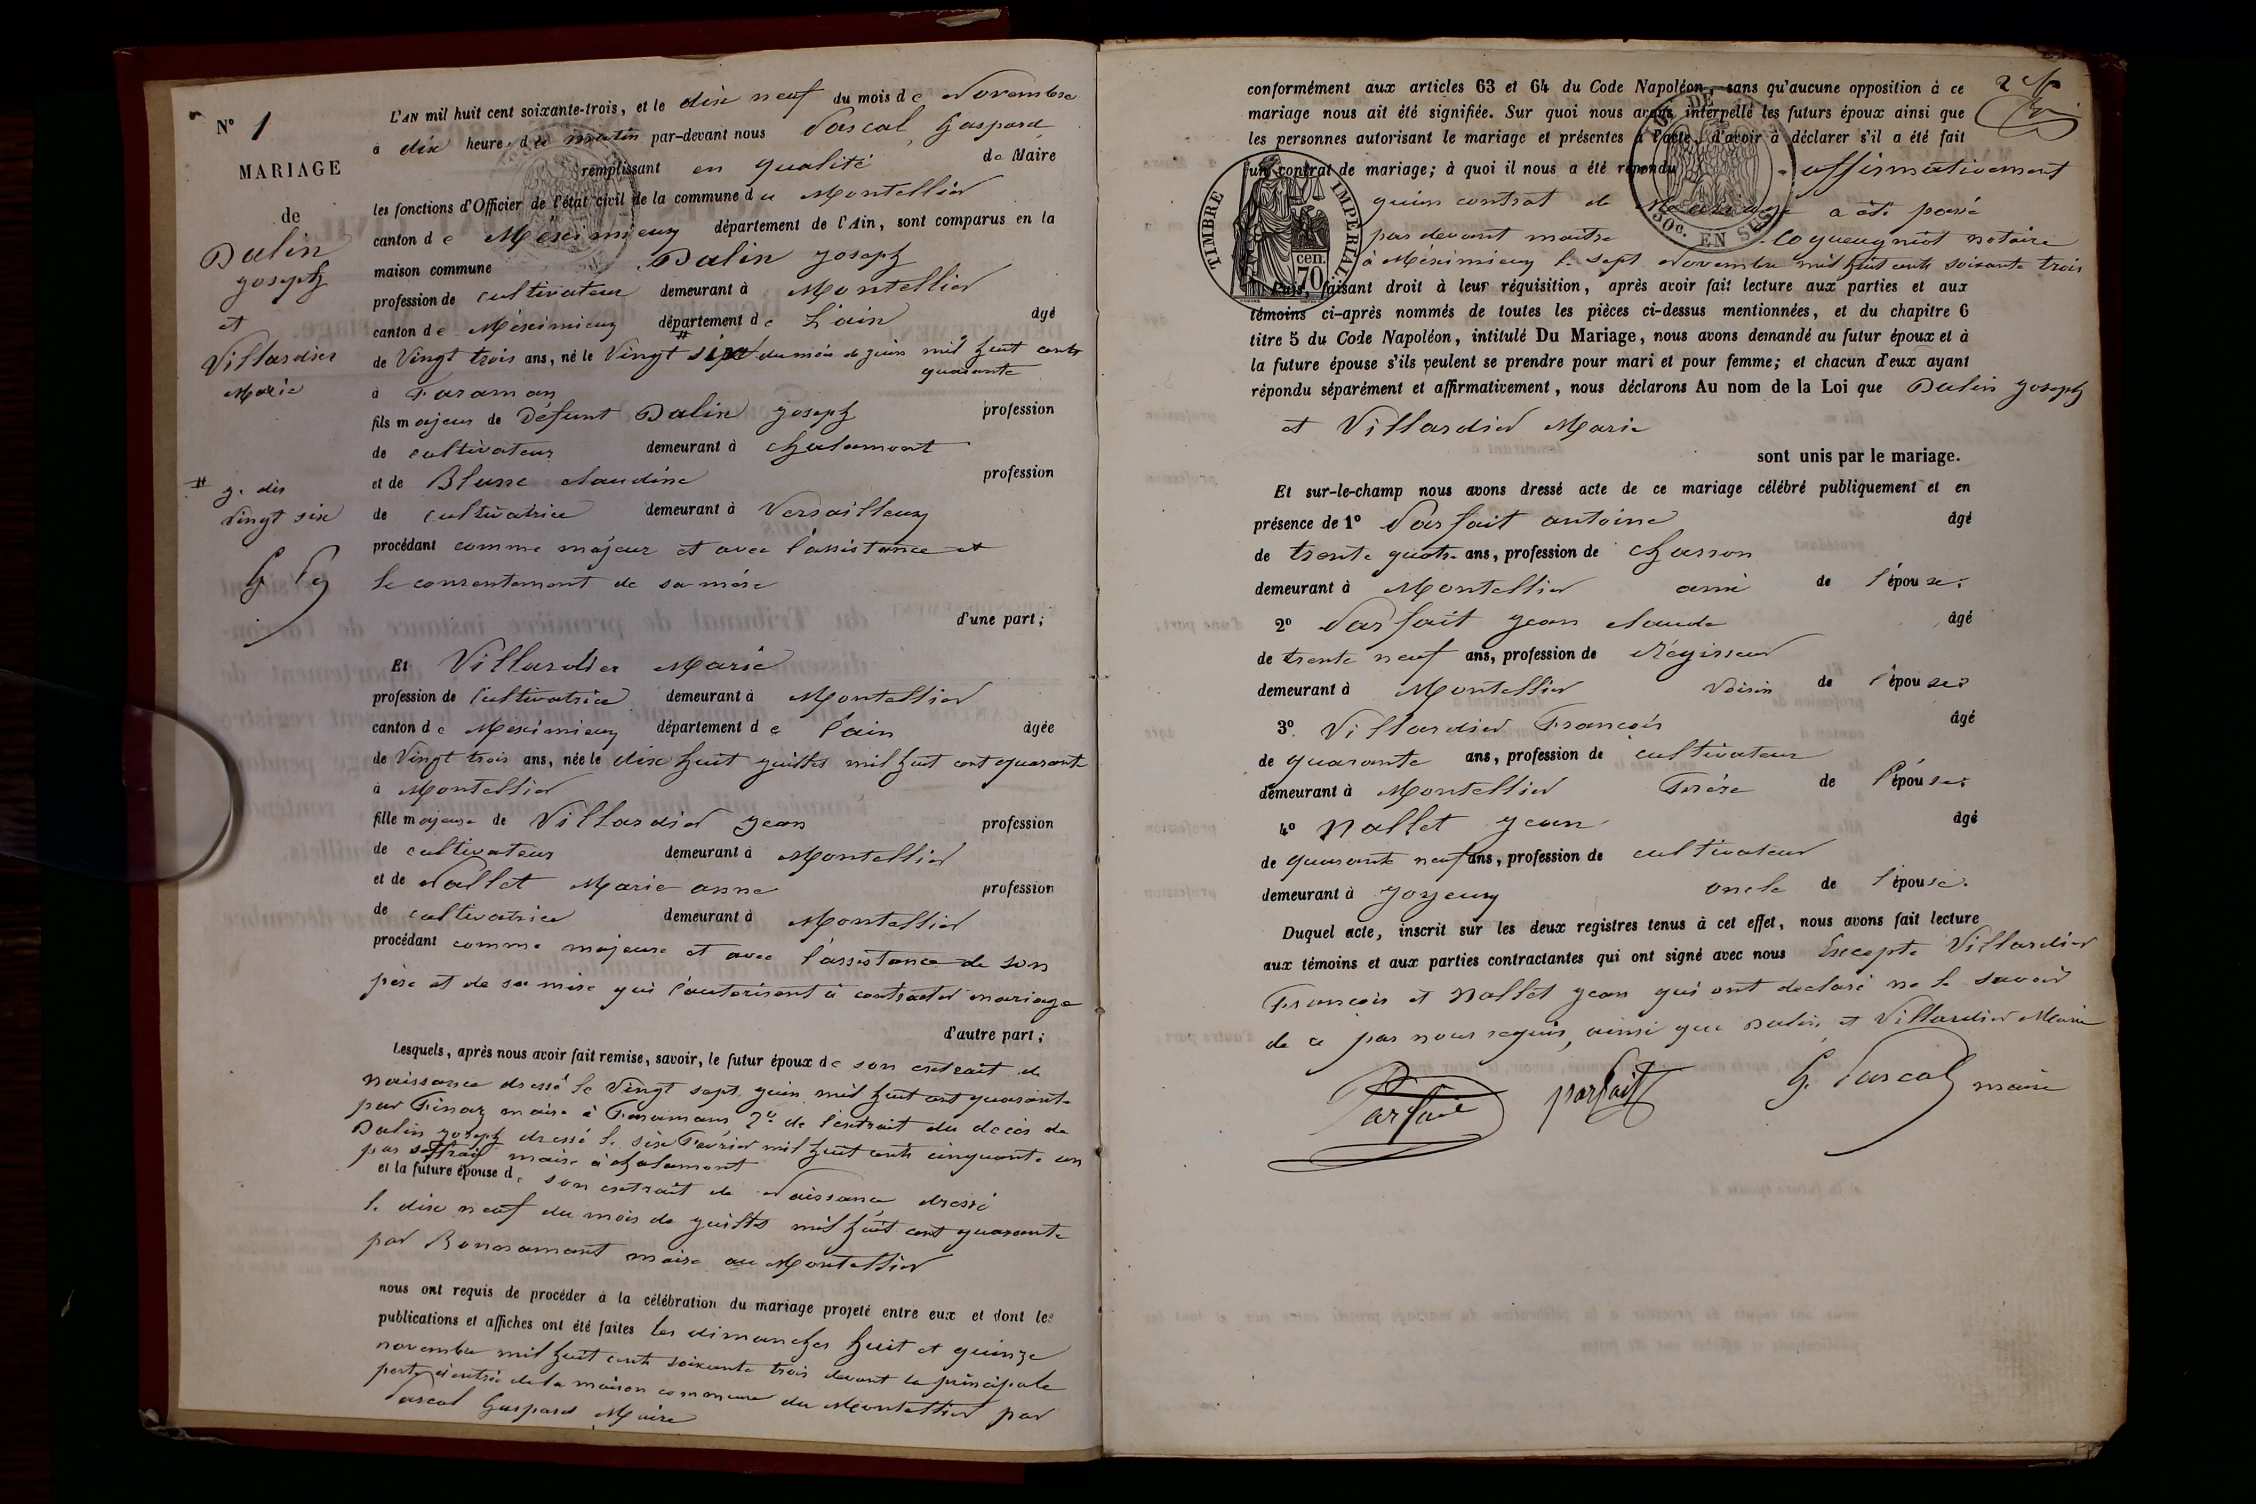 N° 1
MARIAGE
de
Dalin
joseph
et
Villardier
Marie
# je dis
Vingt six
G. Pg
L'AN mil huit cent soixante-trois, et le dix neuf du mois de Novembre
à dix heures de matin par-devant nous Pascal Gaspard
remplissant en qualité de Maire
les fonctions d'Officier de l'état civil de la commune du Montellier
canton de Méximieux département de l'Ain, sont comparus en la
maison commune Dalin joseph
profession de cultivateur demeurant à Montellier
canton de Méximieux département de L'ain âgé
de Vingt trois ans, né le Vingt # sept du mois de juin mil huit cents
quarante
à Faraman
fils majeur de Défunt Dalin joseph profession
de cultivateur demeurant à chalamont
et de Blusse claudine profession
de cultivatrice demeurant à Versailleux
procédant comme majeur et avec l'assistance et
le consentement de sa mére
d'une part;
Et Villardier Marie
profession de Cultivatrice demeurant à Montellier
canton de Meximieux département de l'ain âgée
de Vingt trois ans, née le dix huit juillet mil huit cent quarante
à Montellier
fille majeure de Villardier jean profession
de cultivateur demeurant à Montellier
et de Nallet Marie anne profession
de cultivatrice demeurant à Montellier
procédant comme majeure et avec l'assistance de son
père et de sa mère qui l'autorisent à contracter mariage
d'autre part;
Lesquels, après nous avoir fait remise, savoir, le futur époux de son extrait de
naissance dressé le Vingt sept juin mil huit cent quarante
par Finaz maire à Faramans 2° de l'extrait du décès de
Dalin joseph dressé le six Février mil huit cents cinquante un
par maire à chalamont
et la future épouse de son extrait de Naissance dressé
le dix neuf du mois de juillet mil huit cent quarante
par Bonnamant maire au Montellier
nous ont requis de procéder à la célébration du mariage projeté entre eux et dont les
publications et affiches ont été faites les dimanches huit et quinze
novembre mil huit cents soixante trois devant la principale
porte d'entrée de la maison commune du Montellier par
Pascal Gaspard Maire
2
conformément aux articles 63 et 64 du Code Napoléon, sans qu'aucune opposition à ce
mariage nous ait été signifiée. Sur quoi nous avons interpellé les futurs époux ainsi que
les personnes autorisant le mariage et présentes à l'acte, d'avoir à déclarer s'il a été fait
un contrat de mariage; à quoi il nous a été répondu affirmativement
qu'un contrat de Mariage a été passé
par devant maitre Coqueugniot notaire
à Méximieux le sept Novembre mil huit cents soixante trois
TIMBRE IMPERIAL
cen.
70
50c. EN SUS
Puis, faisant droit à leur réquisition, après avoir fait lecture aux parties et aux
témoins ci-après nommés de toutes les pièces ci-dessus mentionnées, et du chapitre 6
titre 5 du Code Napoléon, intitulé Du Mariage, nous avons demandé au futur époux et à
la future épouse s'ils veulent se prendre pour mari et pour femme; et chacun d'eux ayant
répondu séparément et affirmativement, nous déclarons Au nom de la Loi que Dalin joseph
et Villardier Marie
sont unis par le mariage.
Et sur-le-champ nous avons dressé acte de ce mariage célébré publiquement et en
présence de 1° Parfait antoine âgé
de trente quatre ans, profession de charron
demeurant à Montellier ami de l'épouse.
2° Parfait jean claude âgé
de trente neuf ans, profession de Régisseur
demeurant à Montellier Voisin de l'épouse.
3° Villardier François âgé
de quarante ans, profession de cultivateur
demeurant à Montellier Frére de l'épouse.
4° Nallet jean âgé
de quarante neuf ans, profession de cultivateur
demeurant à joyeux oncle de l'épouse.
Duquel acte, inscrit sur les deux registres tenus à cet effet, nous avons fait lecture
aux témoins et aux parties contractantes qui ont signé avec nous Excepté Villardier
François et Nallet jean qui ont declaré ne le savoir
de ce par nous requis, ainsi que Dalin et Villardier Marie
Parfait parfait G. Pascal maire